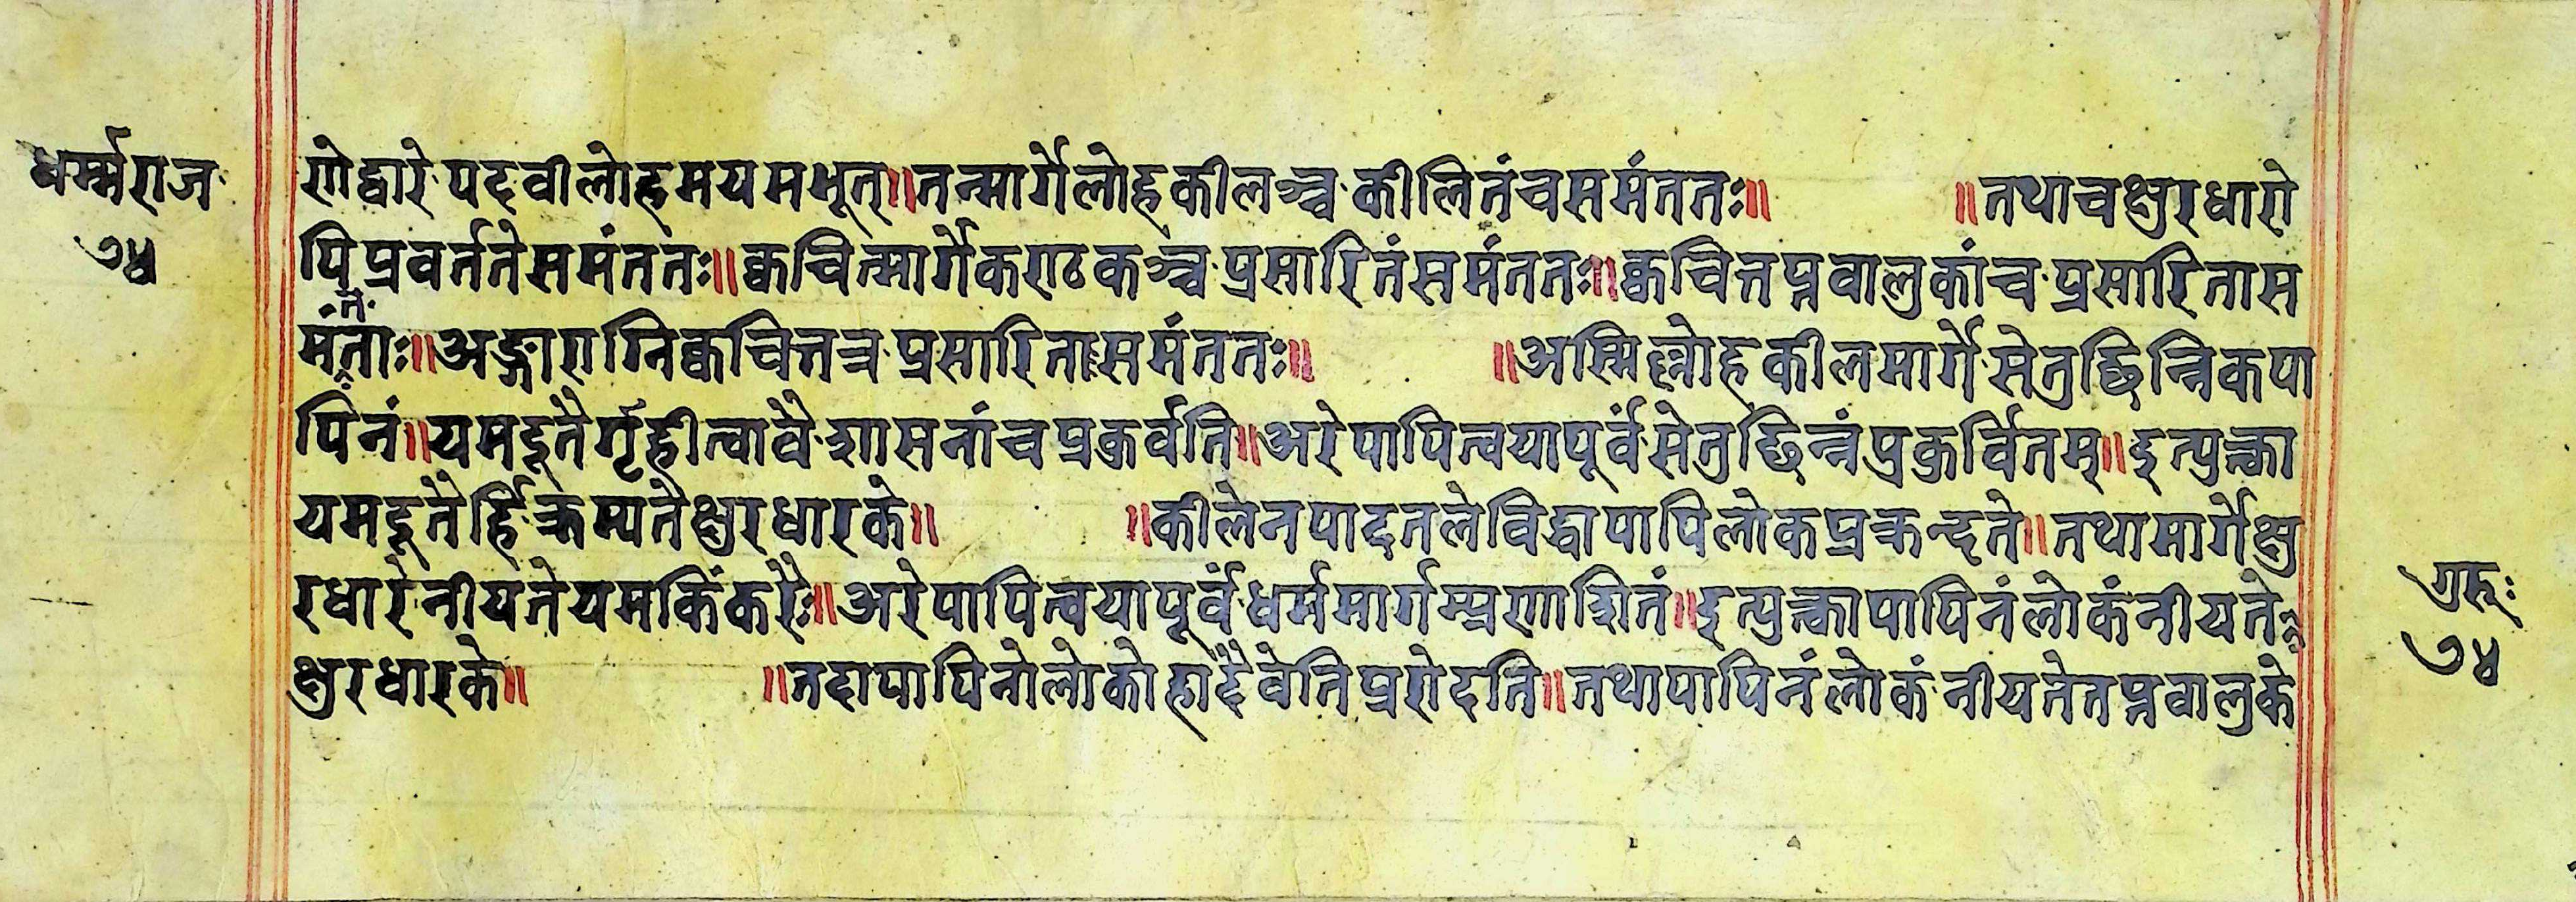 धर्म्मराज
७४
णोद्वारे पदवीलोहमयमभूत्॥तन्मार्गेलोहकीलञ्च कीलितंचसमंततः॥ ॥तथाचक्षुरधारो
पि प्रवर्ततेसमंततः॥क्वचिन्मार्गेकण्टकञ्च प्रसारितंसमंततः॥क्वचित्तप्तवालुकांच प्रसारितास
मंताः॥अङ्गाराग्निक्वचित्तत्र प्रसारितासमंततः॥ ॥अस्मिल्लोहकीलमार्गे सेतुछिन्निकपा
पिनं॥यमदूतैर्गृहीत्वावै शासनांचप्रकुर्वति॥अरेपापित्वयापूर्वं सेतुछिन्नंप्रकुर्वितम्॥इत्युक्त्वा
यमदूतैर्हि क्रम्यतेक्षुरधारके॥ ॥कीलेनपादतलेविद्धापापिलोकप्रक्रन्दते॥तथामार्गेक्षु
रधारे नीयतेयमकिंकरैः॥अरेपापित्वयापूर्वं धर्ममार्गम्प्रणाशितं॥इत्युक्त्वापापिनंलोकंनीयते
क्षुरधारके॥ ॥तदापापिनोलोकोहादैवेतिप्ररोदति॥तथापापिनंलोकं नीयतेतप्तवालुके
गुरुः
७४